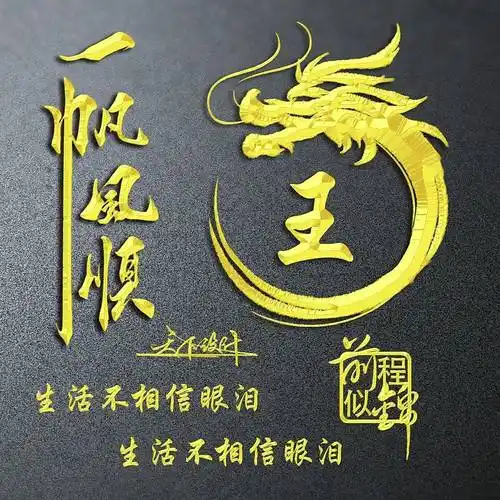 一帆风顺
王
天下设计
前程似锦
生活不相信眼泪
生活不相信眼泪